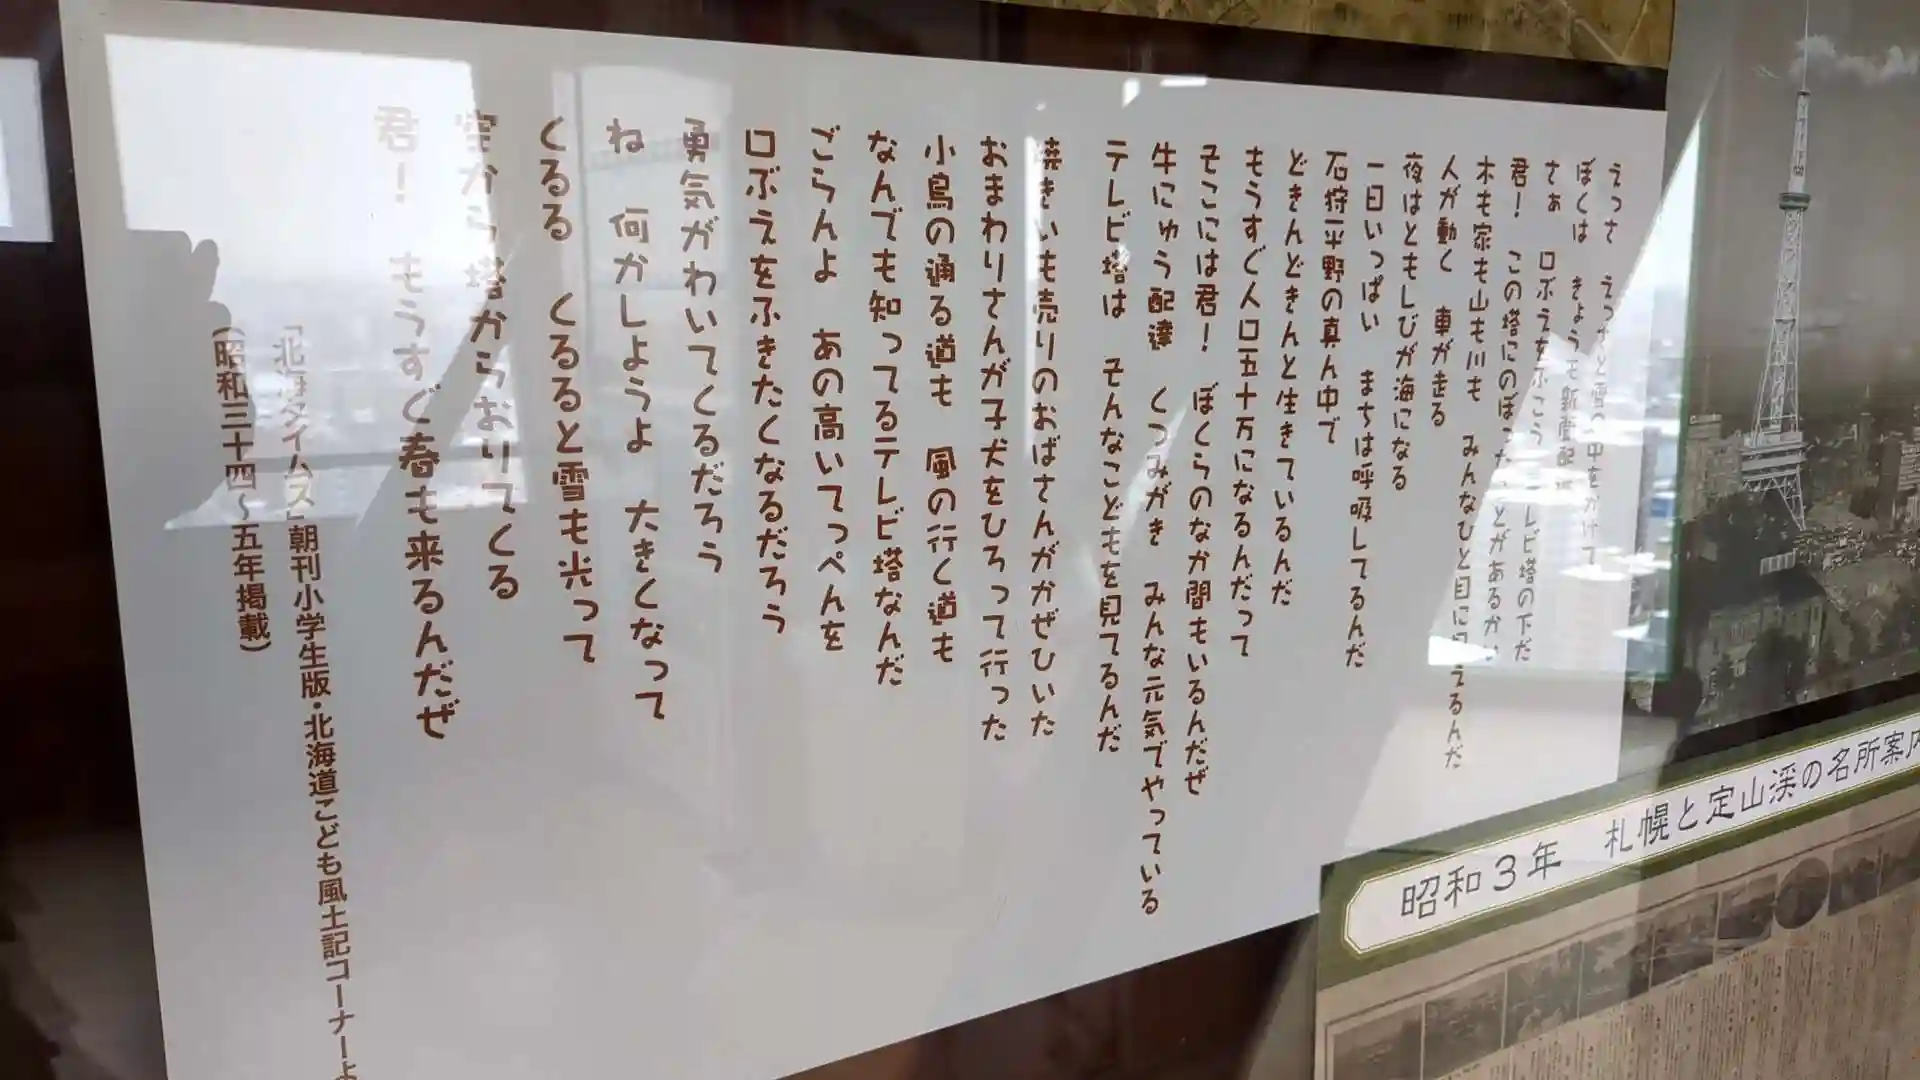 えっさ えっさと雪の中をかけて
ぼくは きょうも新聞配
さあ 口ぶえをふこう テレビ塔の下だ
君! この塔にのぼったことがあるかい
木も家も山も川も みんなひと目に見えるんだ
人が動く 車が走る
夜はともしびが海になる
一日いっぱい まちは呼吸してるんだ
石狩平野の真ん中で
どきんどきんと生きているんだ
もうすぐ人口五十万になるんだって
そこには君! ぼくらのなか間もいるんだぜ
牛にゅう配達 くつみがき みんな元気でやっている
テレビ塔は そんなこどもを見てるんだ
焼きいも売りのおばさんがかぜひいた
おまわりさんが子犬をひろって行った
小鳥の通る道も 風の行く道も
なんでも知ってるテレビ塔なんだ
ごらんよ あの高いてっぺんを
口ぶえをふきたくなるだろう
勇気がわいてくるだろう
ね 何かしようよ 大きくなって
くるる くるると雪も光って
空から塔からおりてくる
君! もうすぐ春も来るんだぜ
「北海タイムス」朝刊小学生版・北海道こども風土記コーナーよ
(昭和三十四～五年掲載)
昭和3年 札幌と定山渓の名所案内